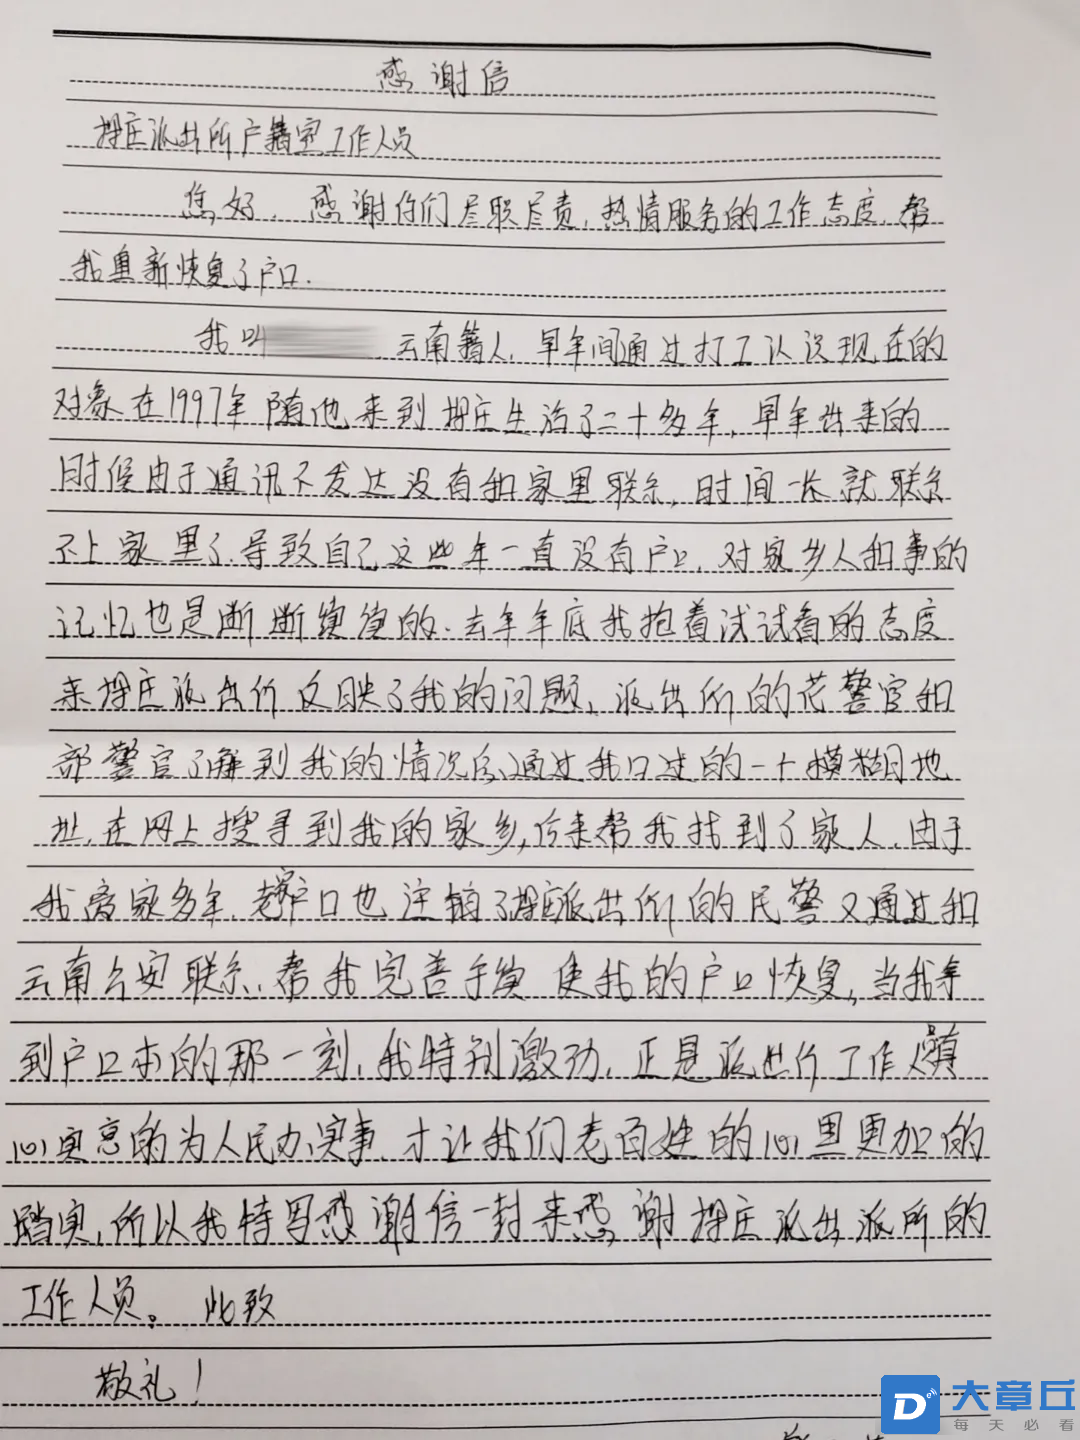 感谢信
埠庄派出所户籍室工作人员
您好，感谢你们尽职尽责，热情服务的工作态度，帮
我重新恢复了户口．
我叫 云南籍人，早年间通过打工认识现在的
对象在1997年随他来到埠庄生活了二十多年，早年出来的
时候由于通讯不发达没有和家里联系，时间一长就联系
不上家里了．导致自己这些年一直没有户口，对家乡人和事的
记忆也是断断续续的．去年年底我抱着试试看的态度
来埠庄派出所反映了我的问题，派出所的花警官和
部警官了解到我的情况后通过我口述的一个模糊地
址，在网上搜寻到我的家乡，后来帮我找到了家人．由于
我离家多年，老家户口也注销了埠庄派出所的民警又通过和
云南公安联系．帮我完善手续 使我的户口恢复，当我拿
到户口本的那一刻，我特别激动，正是派出所工作人员真
心实意的为人民办实事，才让我们老百姓的心里更加的
踏实，所以我特写感谢信一封来感谢埠庄派出派所的
工作人员。 此致
敬礼！
大章丘
每天必看